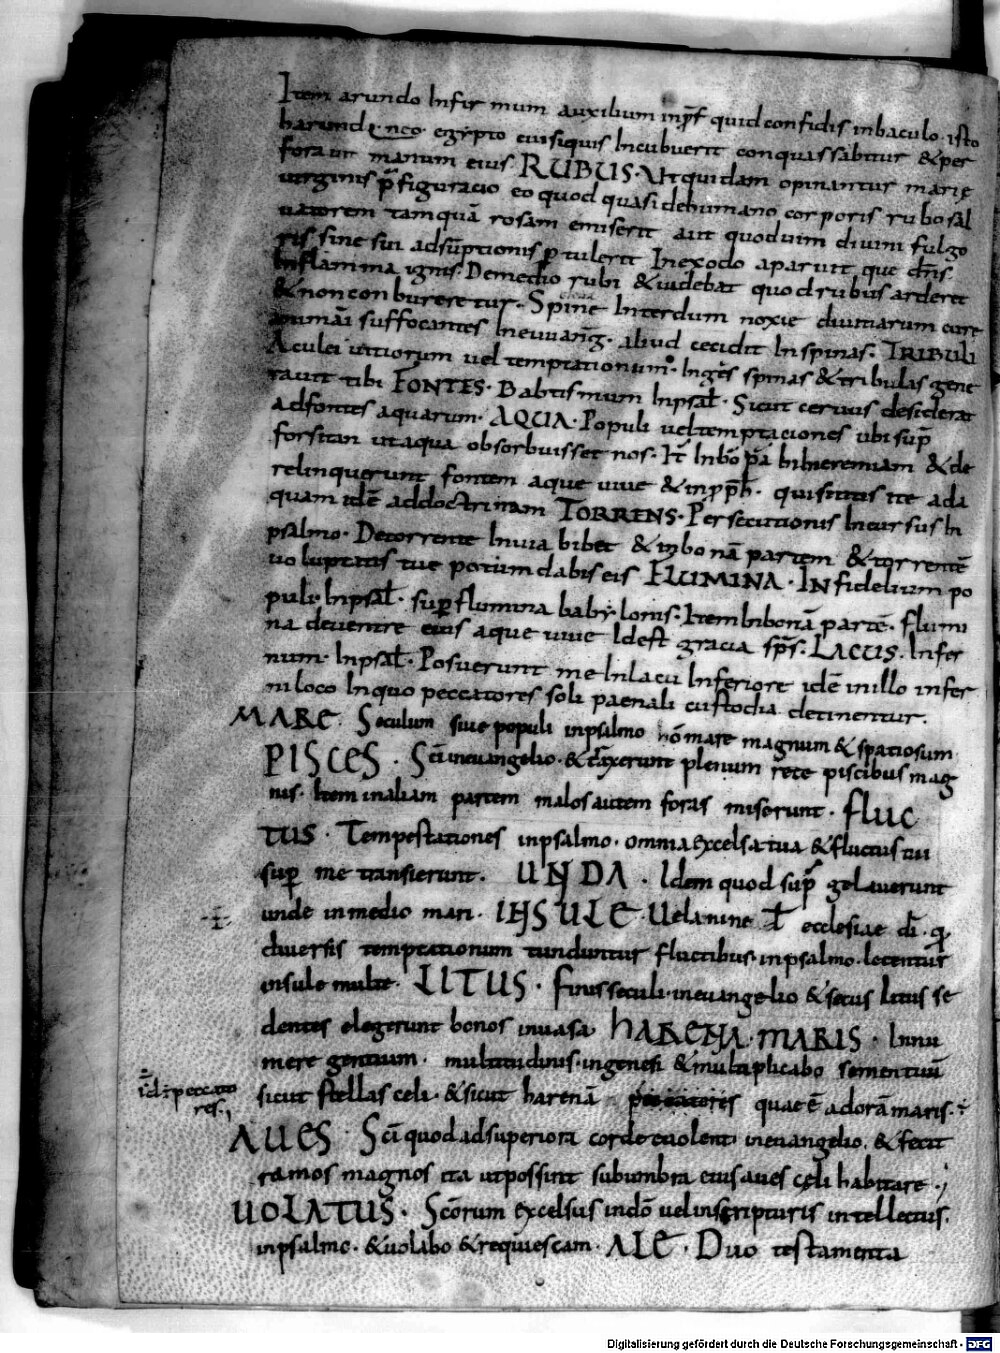 Item arundo Infir mum auxilium inp̄s quid confidis inbaculo isto
harundineo egypto cui siquis Incubuerit conquassabitur & per
forauit manum eius. RUBUS. Ut quidam opinantur marię
uirginis p̄figuracio eo quod quasi dehumano corporis rubo sal
uatorem tamquā rosam emiserit aut quod uim diuini fulgo
ris sine sui adsūptionis ꝑtulerit Inexodo aparuit que dn̄s
Inflamma ignis. Demedio rubi & uidebat quod rubus arderet
& non conbureretur. Spine Interdum noxie diuitiarum cure
animā suffocantes Ineuuang̅. aliud cecidit In spinas. TRIBULI
Aculei uitiorum uel temptationum. Ingēs spinas & tribulas gene
rauit tibi FONTES. Babtismum Inpsaƚ. Sicut ceruus desiderat
adfontes aquarum. AQUA. Populi uel temptaciones ubi sup̄
forsitan ut aqua obsorbuisset nos. It̄ Inbō p̄a hiheremiam & de
relinquerunt fontem aque uiue & inp̄p̄h. quisititis ite ada
quam idē addoctrinam TORRENS. Persecutionis Incursus In
psalmo. Detorrente Inuia bibet & inbonā partem & torrentē
uoluptatis tue potum dabis eis FLUMINA. INfidelium po
puli. Inpsaƚ. suꝑ flumina babylonis. Item Inbonā partē. flumi
na deuentre eius aque uiue Idest gracia sp̄s. LACUS. Infer
num. Inpsaƚ. Posuerunt me Inlacu Inferiore idē inillo infer
ni loco Inquo peccatores soli paenali custodia detinentur.
MARE. Seculum siue populi inpsalmo hōmare magnum & spatiosum
PISCES. Sc̄i ineuangelio. & traxerunt plenum rete piscibus mag
nis. Item inaliam partem malos autem foras miserunt. FLUC
TUS. Tempestationes inpsalmo. omnia excelsa tua & fluctus tui
suꝑ me transierunt. UNDA. Idem quod sup̄ gelauerunt
unde inmedio mari. INSULE. Uelanime ƚ ecclesiae dī. q̄
diuersis temptationum tunduntur fluctibus. inpsalmo. letentur
insule multe. LITUS. finis seculi. ineuangelio & secus litus se
dentes elegerunt bonos inuasa HARENA MARIS. Innu
mere gentium. multitudinis. ingenesi & multiplicabo sementuū
id÷ peccato
res.
sicut stellas celi. & sicut harenā quae ē adorā maris.
AUES. Sc̄i quod adsuperiora corde euolent ineuangelio. & fecit
ramos magnos ita ut possint subumbra eius aues cęli habitare.
UOLATUS. Scōrum excelsus indō uel inscripturis intellectus.
inpsalmo. & uolabo & requiescam. ALE. Duo testamenta
Digitalisierung gefördert durch die Deutsche Forschungsgemeinschaft - DFG